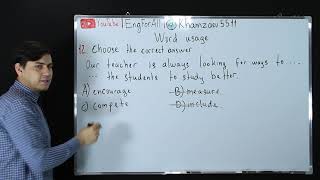 YouTube EngForAll Khamzaev5511
Word usage
12. Choose the correct answer
Our teacher is always looking for ways to ....
.... the students to study better.
A) encourage B) measure
C) compete D) include